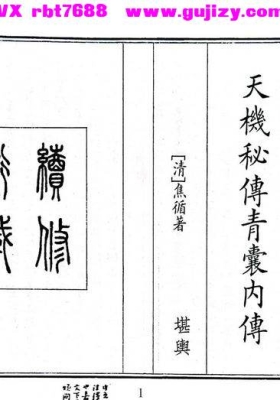 VX rbt7688 www.gujizy.com
天機秘傳青囊內傳
[清]焦循著
堪輿
續修
1